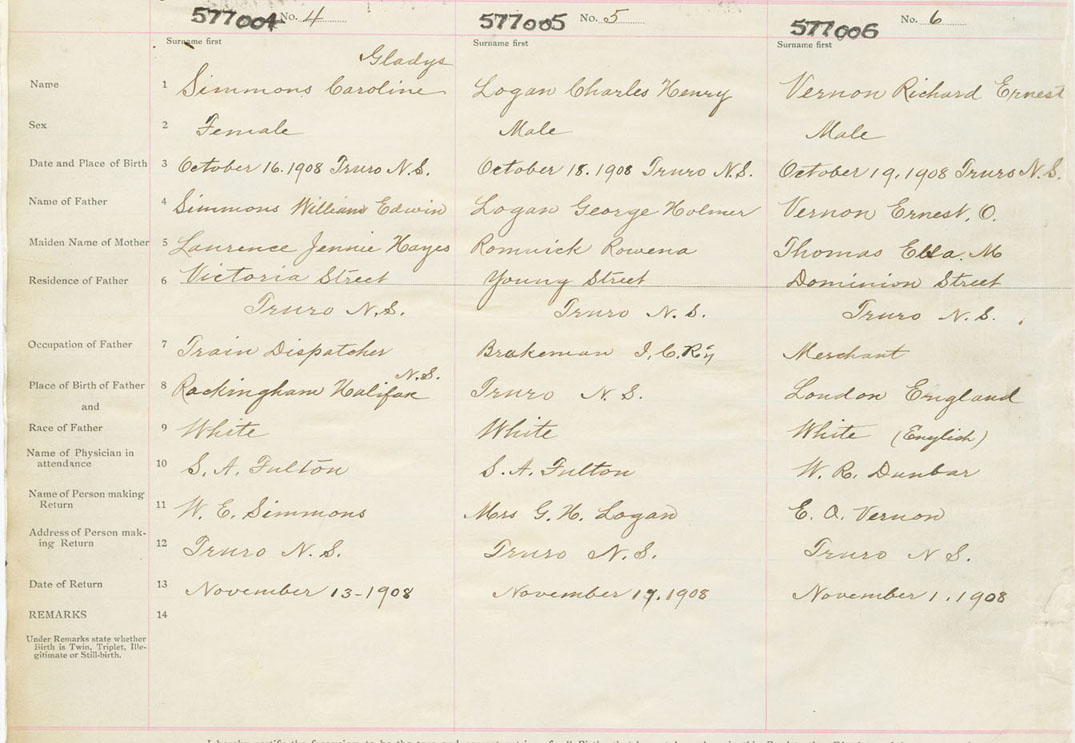 577004 No. 4 577005 No. 5 577006 No. 6
Surname first Surname first Surname first
Gladys
Name 1 Simmons Caroline Logan Charles Henry Vernon Richard Ernest
Sex 2 Female Male Male
Date and Place of Birth 3 October 16. 1908 Truro N.S. October 18. 1908 Truro N.S. October 19, 1908 Truro N.S.
Name of Father 4 Simmons William Edwin Logan George Holmer Vernon Ernest. O.
Maiden Name of Mother 5 Laurence Jennie Hayes Rowena Thomas Ella. M
Residence of Father 6 Victoria Street Young Street Dominion Street
Truro N.S. Truro N. S. Truro N. S.
Occupation of Father 7 Train Dispatcher Brakeman I.C.R'y Merchant
N.S.
Place of Birth of Father 8 Rockingham Halifax Truro N. S. London England
and
Race of Father 9 White White White (English)
Name of Physician in
attendance 10 S. A. Fulton S. A. Fulton W. R. Dunbar
Name of Person making
Return 11 W. E. Simmons Mrs G. H. Logan E. O. Vernon
Address of Person mak-
ing Return 12 Truro N. S. Truro N. S. Truro N S.
Date of Return 13 November 13-1908 November 17. 1908 November 1. 1908
REMARKS 14
Under Remarks state whether
Birth is Twin, Triplet, Ille-
gitimate or Still-birth.